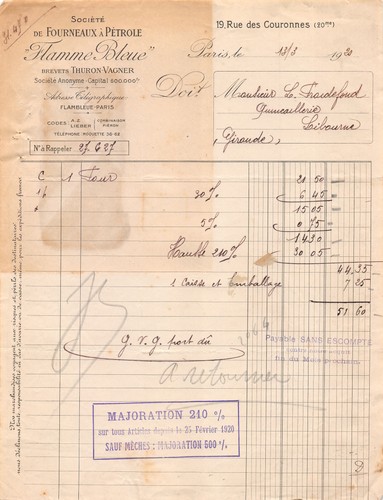 SOCIÉTÉ
DE FOURNEAUX À PÉTROLE
"Flamme Bleue"
BREVETS THURON-VAGNER
Société Anonyme-Capital 200.000 frs
Adresse Télégraphique:
FLAMBLEUE-PARIS
CODES A.Z.
LIEBER
TÉLÉPHONE ROQUETTE 36-62
Nº à Rappeler 27.627
19, Rue des Couronnes (20me)
Paris, le 13/3 1920
Doit
Monsieur L.
Quincaillerie
Libourne
(Gironde)
C 1 Four 21 50
30% 6 45
15 05
5% 0 75
14 30
Hausse 210% 30 05
44 35
1 Caisse et Emballage 7 25
51 60
G. V. G. port dû
a retourner
Payable SANS ESCOMPTE
fin du Mois prochain
MAJORATION 210 %
sur tous Articles depuis le 25 Février 1920
SAUF MÈCHES: MAJORATION 500 %